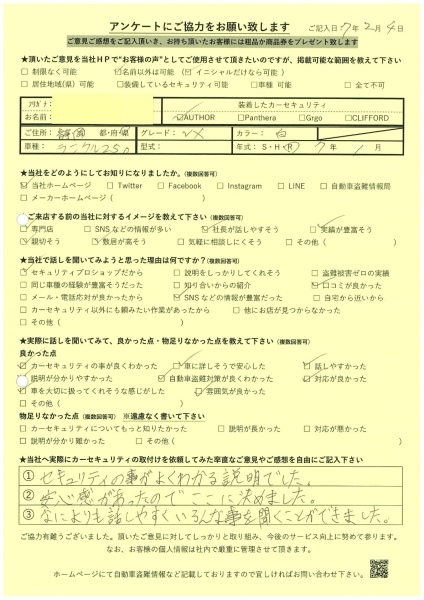 アンケートにご協力をお願い致します
ご記入日 7年 2月 4日
ご意見ご感想をご記入頂いき、お持ち頂いたお客様には粗品か商品券をプレゼント致します
★頂いたご意見を当社HPで"お客様の声"としてご使用させて頂きたいのですが、掲載可能な範囲を教えて下さい
□ 制限なく可能 □ 名前以外は可能 (□ イニシャルだけなら可能)
□ 居住地域(県) 可能 □ 装備しているセキュリティ可能 □ 車種 可能 □ 全て不可
フリガナ:
装着したカーセキュリティ
お名前:
☑AUTHOR □Panthera □Grgo □CLIFFORD
ご住所: 静岡 都・府・県 グレード: VX カラー: 白
車種: ランクル250 型式: 年式:S・H・R 7年 1月
★当社をどのようにしてお知りになりましたか。(複数回答可)
☑ 当社ホームページ □ Twitter □ Facebook □ Instagram □ LINE □ 自動車盗難情報局
□ メーカーホームページ ( )
ご来店する前の当社に対するイメージを教えて下さい (複数回答可)
☑ 専門店 □ SNSなどの情報が多い ☑ 社長が話しやすそう ☑ 実績が豊富そう
☑ 親切そう ☑ 敷居が高そう □ 気軽に相談しにくそう □ その他 ( )
★当社で話を聞いてみようと思った理由は何ですか?(複数回答可)
☑ セキュリティプロショップだから □ 説明をしっかりしてくれそう □ 盗難被害ゼロの実績
□ 同じ車種の経験が豊富そうだった □ 知り合いからの紹介 ☑ 口コミが良かった
□ メール・電話応対が良かったから ☑ SNSなどの情報が豊富だった □ 自宅から近いから
□ カーセキュリティ以外にも頼みたい作業があったから □ 他にお店が見つからなかった
□ その他 ( )
★実際に話しを聞いてみて、良かった点・物足りなかった点を教えて下さい (複数回答可)
良かった点
☑ カーセキュリティの事が良くわかった ☑ 車に詳しそうで安心した ☑ 話しやすかった
☑ 説明が分かりやすかった ☑ 自動車盗難対策が良くわかった ☑ 対応が良かった
☑ 車を大切に扱ってくれそうな感じがした ☑ 雰囲気が良かった
□ その他 ( )
物足りなかった点 (複数回答可) ※遠慮なく書いて下さい
□ カーセキュリティについてもっと知りたかった □ 説明が長かった □ 対応が悪かった
□ 説明が分かり難かった □ その他 ( )
★当社へ実際にカーセキュリティの取付けを依頼してみた率直なご意見やご感想を自由にご記入下さい
① セキュリティの事がよくわかる説明でした。
② 安心感があったのでここに決めました。
③ なによりも話しやすくいろんな事を聞くことができました。
ご協力有難うございました。頂いたご意見に対してしっかりと取り組み、今後のサービス向上に努めて参ります。
なお、お客様の個人情報は社内で厳重に管理させて頂きます。
ホームページにて自動車盗難情報など記載しておりますので宜しければお問い合わせ下さい。